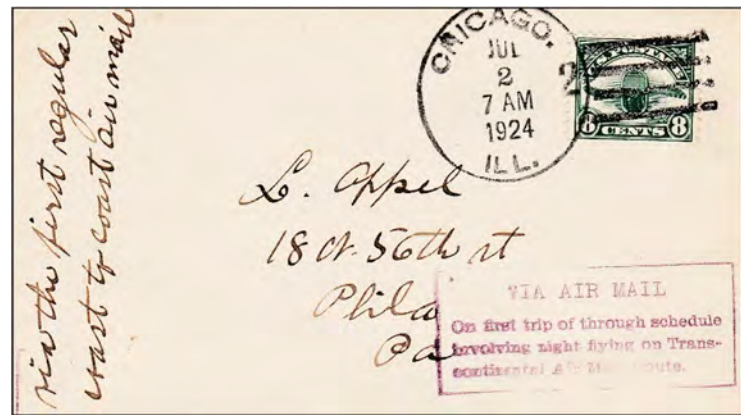 via the first regular
coast to coast air mail
CHICAGO,
JUL
2
7 AM
1924
ILL.
2
8 CENTS 8
L. Appel
18 N. 56th st
Phila
Pa
VIA AIR MAIL
On first trip of through schedule
involving night flying on Trans-
continental Air Mail Route.